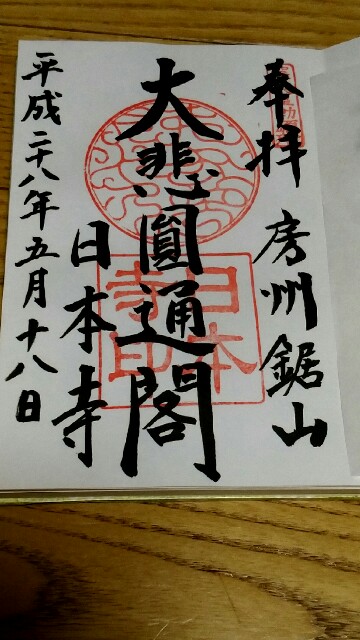 奉拝 房州鋸山
大悲圓通閣
日本寺
平成二十八年五月十八日
日本
寺印